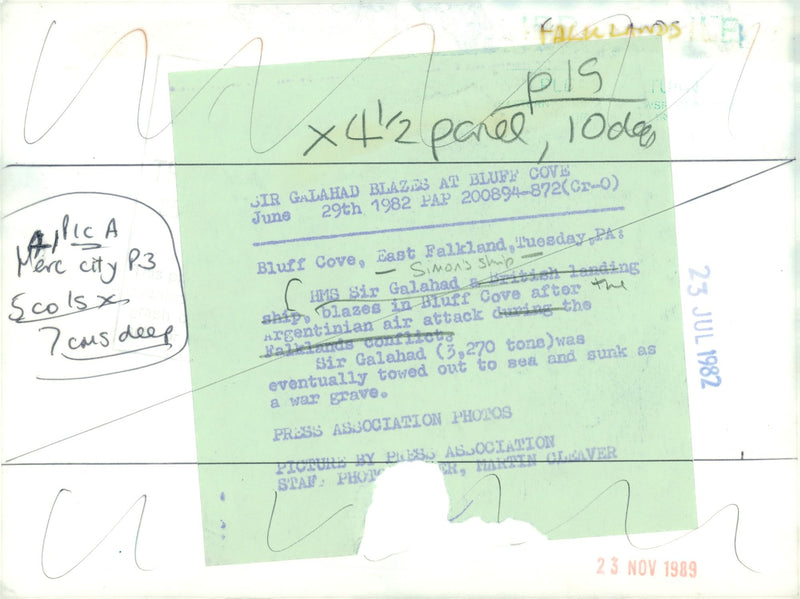 FALKLANDS
p19
x 4½ panel, 10 deep
SIR GALAHAD BLAZES AT BLUFF COVE
June 29th 1982 PAP 200894-872(Cr-O)
Bluff Cove, East Falkland, Tuesday, PA:
Simon's ship
HMS Sir Galahad a British landing
ship, blazes in Bluff Cove after the
Argentinian air attack during the
Falklands conflict.
Sir Galahad (3,270 tons)was
eventually towed out to sea and sunk as
a war grave.
PRESS ASSOCIATION PHOTOS
PICTURE BY PRESS ASSOCIATION
STAFF MARTIN CLEAVER
Pic A
Merc city P3
5 cols x
7 cms deep
23 JUL 1982
23 NOV 1989